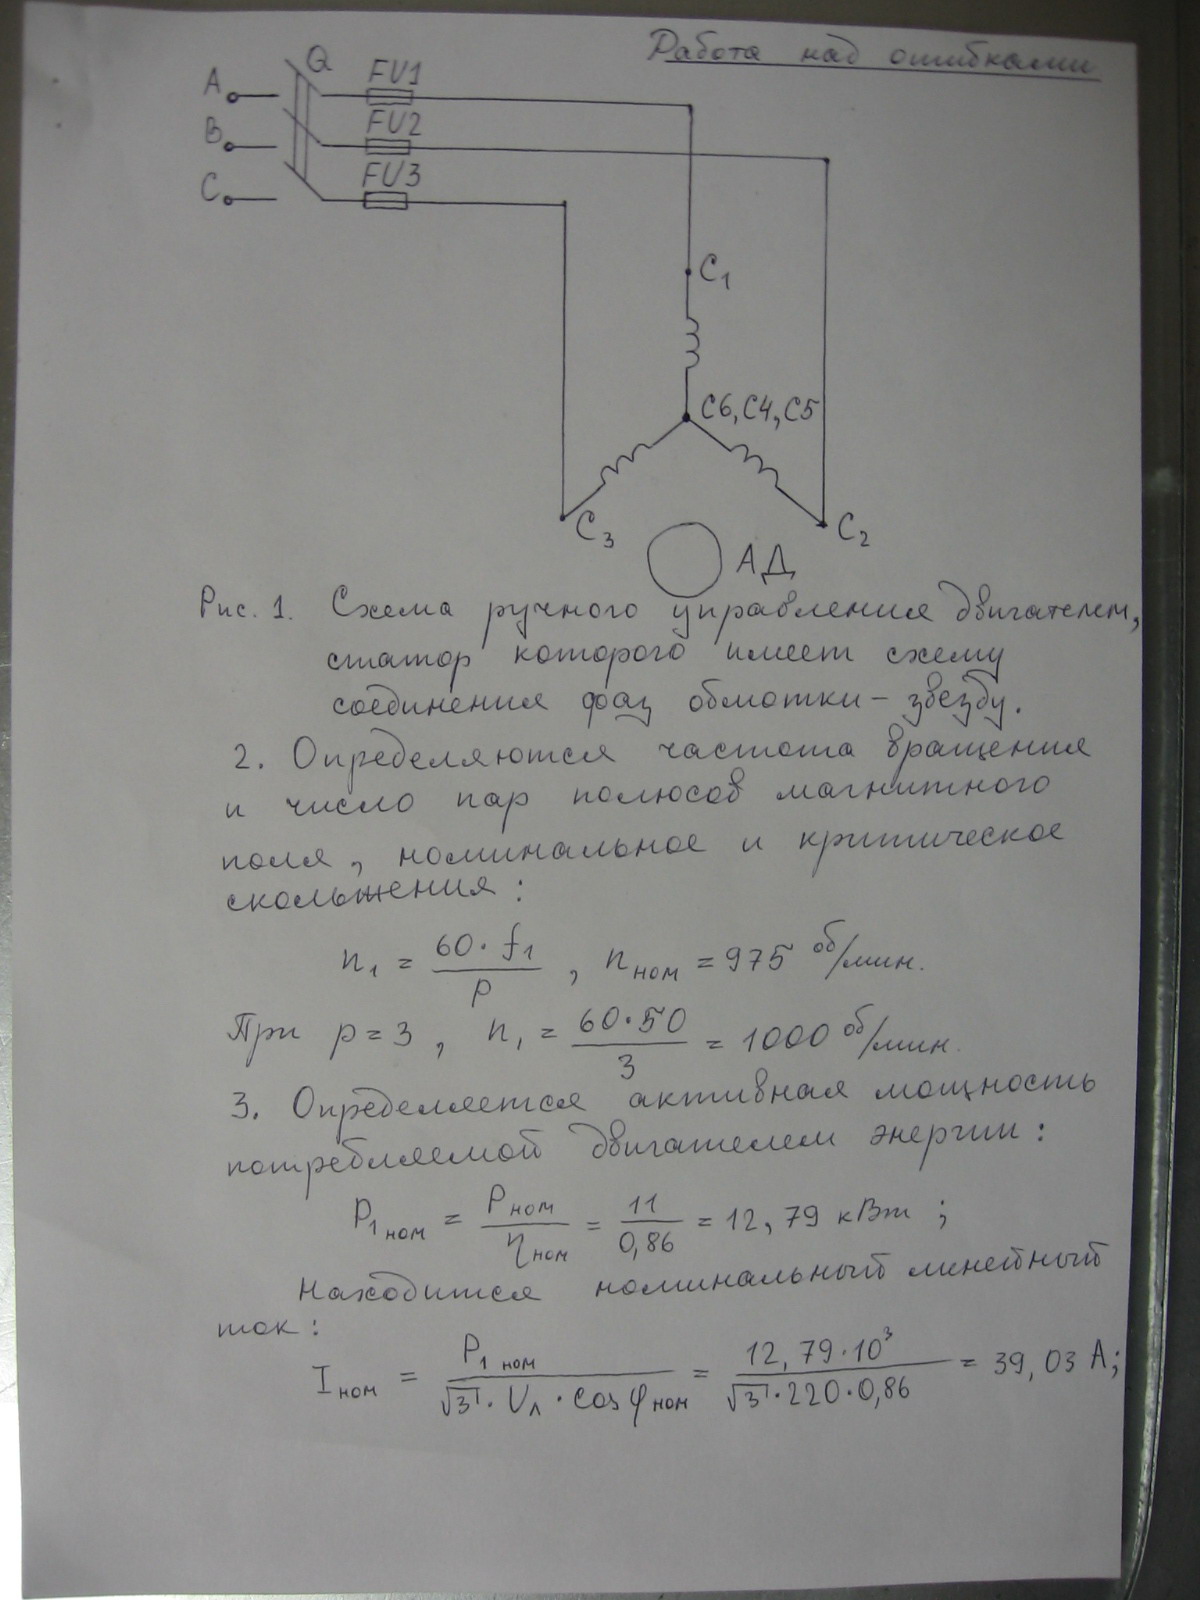 Работа над ошибками
A Q FU1
B FU2
C FU3
C₁
C6, C4, C5
C₃ C₂
АД
Рис. 1. Схема ручного управления двигателем,
статор которого имеет схему
соединения фаз обмотки – звезду.
2. Определяются частота вращения
и число пар полюсов магнитного
поля, номинальное и критическое
скольжения:
n₁ = 60·f₁ / p , nном = 975 об/мин.
При p = 3, n₁ = 60·50 / 3 = 1000 об/мин.
3. Определяется активная мощность
потребляемой двигателем энергии:
P₁ном = Pном / ηном = 11 / 0,86 = 12,79 кВт;
Находится номинальный линейный
ток:
Iном = P₁ном / √3·Uл·cosφном = 12,79·10³ / √3·220·0,86 = 39,03 А;